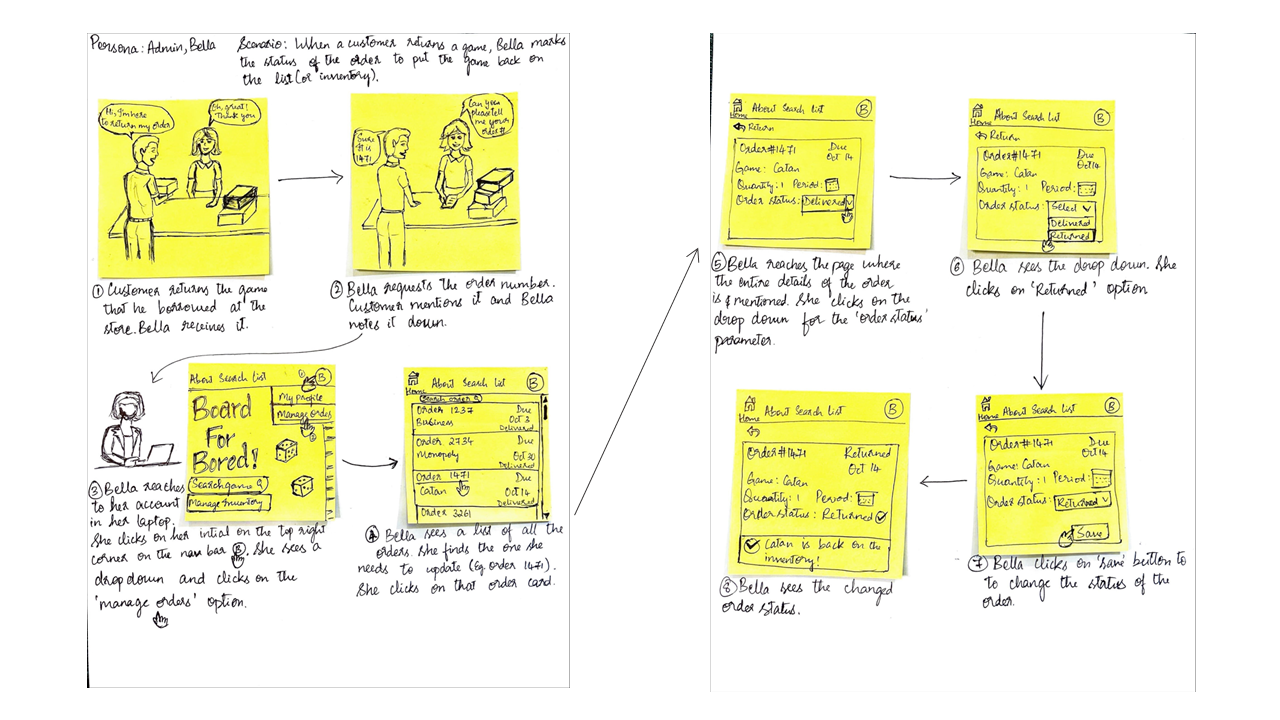 Persona: Admin, Bella
Scenario: When a customer returns a game, Bella marks
the status of the order to put the game back on
the list (or inventory).
Hi, I'm here
to return my order
Oh, great!
Thank you
① Customer returns the game
that he borrowed at the
store. Bella receives it.
Sure
# is
1471
Can you
please tell
me your
order #
② Bella requests the order number.
Customer mentions it and Bella
notes it down.
About Search List B
①
My profile
Manage order
②
Board
For
Bored!
Search game
Manage Inventory
③ Bella reaches
to her account
in her laptop.
She clicks on her intial on the top right
corner on the nav bar B. She sees a
dropdown and clicks on the
'manage orders' option.
Home About Search List B
Search order
Order 1237 Due
Business Oct 3
Delivered
Order 2734 Due
Monopoly Oct 30
Delivered
Order 1471 Due
Catan Oct 14
Delivered
Order 3261
④ Bella sees a list of all the
orders. She finds the one she
needs to update (Eg. order 1471).
She clicks on that order card.
Home About Search List B
Return
Order#1471 Due
Oct 14
Game: Catan
Quantity: 1 Period:
Order status: Delivered
⑤ Bella reaches the page where
the entire details of the order
is mentioned. She clicks on the
drop down for the 'order status'
parameter.
Home About Search List B
Return
Order#1471 Due
Oct 14
Game: Catan
Quantity: 1 Period:
Order status: Select
Delivered
Returned
⑥ Bella sees the drop down. She
clicks on 'Returned' option
Home About Search List B
Order#1471 Due
Oct 14
Game: Catan
Quantity: 1 Period:
Order status: Returned
Save
⑦ Bella clicks on 'save' button to
to change the status of the
order.
Home About Search List B
Order#1471 Returned
Oct 14
Game: Catan
Quantity: 1 Period:
Order status: Returned
Catan is back on the
inventory!
⑧ Bella sees the changed
order status.